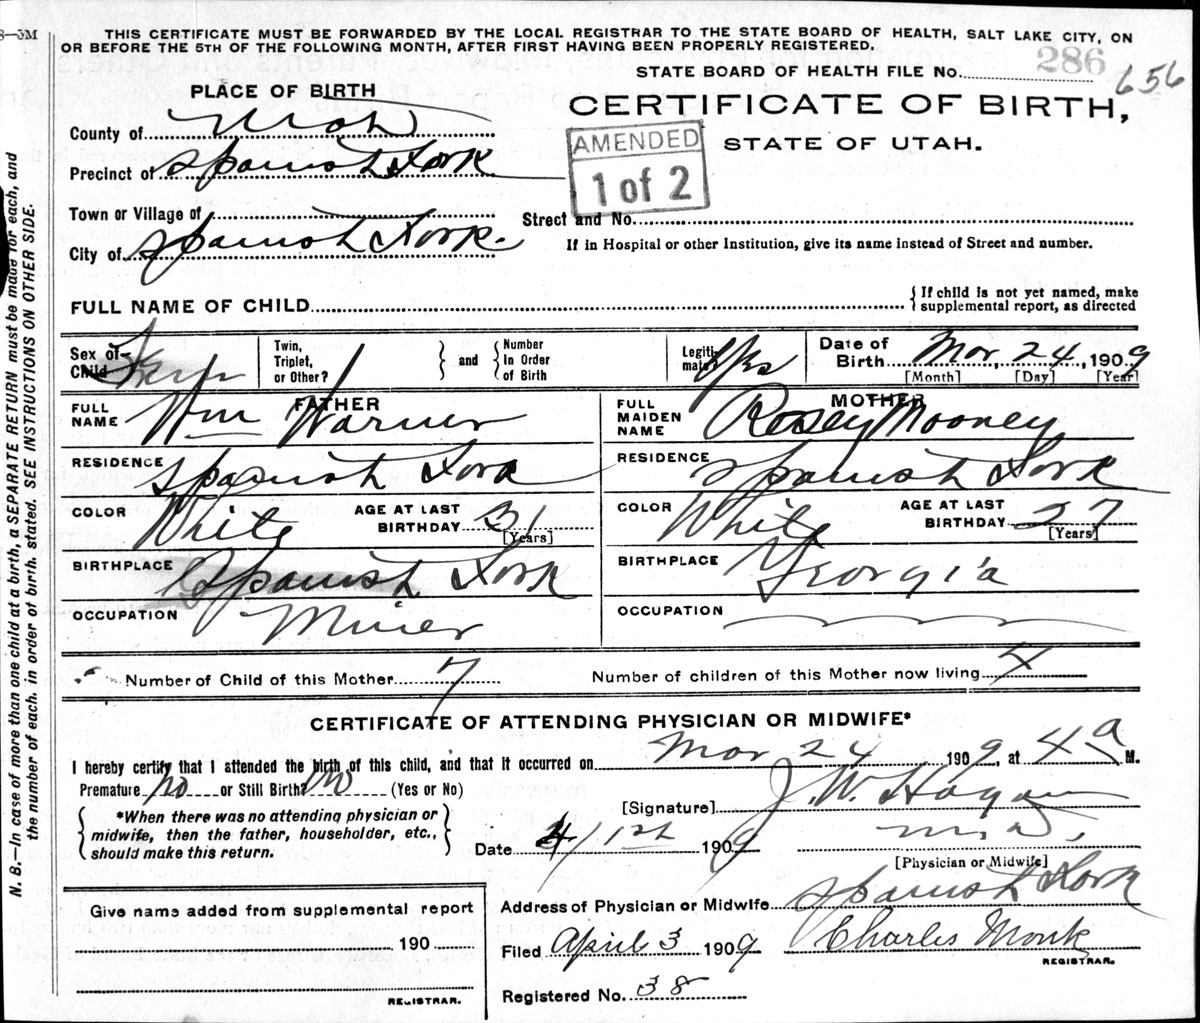 8—5M
THIS CERTIFICATE MUST BE FORWARDED BY THE LOCAL REGISTRAR TO THE STATE BOARD OF HEALTH, SALT LAKE CITY, ON
OR BEFORE THE 5TH OF THE FOLLOWING MONTH, AFTER FIRST HAVING BEEN PROPERLY REGISTERED.
STATE BOARD OF HEALTH FILE No. 286 656
PLACE OF BIRTH
CERTIFICATE OF BIRTH,
STATE OF UTAH.
AMENDED
1 of 2
County of Utah
Precinct of Spanish Fork
Town or Village of
Street and No.
City of Spanish Fork.
If in Hospital or other Institution, give its name instead of Street and number.
FULL NAME OF CHILD
{ If child is not yet named, make
supplemental report, as directed
Sex of
Child
Twin,
Triplet,
or Other?
} and { Number
In Order
of Birth
Legiti-
mate? Yes
Date of
Birth Mar 24, 1909
[Month] [Day] [Year]
FATHER
FULL
NAME Wm Warner
MOTHER
FULL
MAIDEN
NAME Rosey Mooney
RESIDENCE Spanish Fork
RESIDENCE Spanish Fork
COLOR White
AGE AT LAST
BIRTHDAY 31
[Years]
COLOR White
AGE AT LAST
BIRTHDAY 27
[Years]
BIRTHPLACE Spanish Fork
BIRTHPLACE Georgia
OCCUPATION Miner
OCCUPATION
Number of Child of this Mother 7
Number of children of this Mother now living
CERTIFICATE OF ATTENDING PHYSICIAN OR MIDWIFE*
I hereby certify that I attended the birth of this child, and that it occurred on Mar 24 1909, at 4 a M.
Premature no or Still Birth? no (Yes or No)
{ *When there was no attending physician or
midwife, then the father, householder, etc.,
should make this return. }
[Signature] J. W. Hagan
M.D.,
[Physician or Midwife]
Date 4/1st 1909
Address of Physician or Midwife Spanish Fork
Filed April 3 1909
Charles Monk
REGISTRAR.
Registered No. 38
Give name added from supplemental report
190
REGISTRAR.
N. B.—In case of more than one child at a birth, a SEPARATE RETURN must be made for each, and
the number of each, in order of birth, stated. SEE INSTRUCTIONS ON OTHER SIDE.